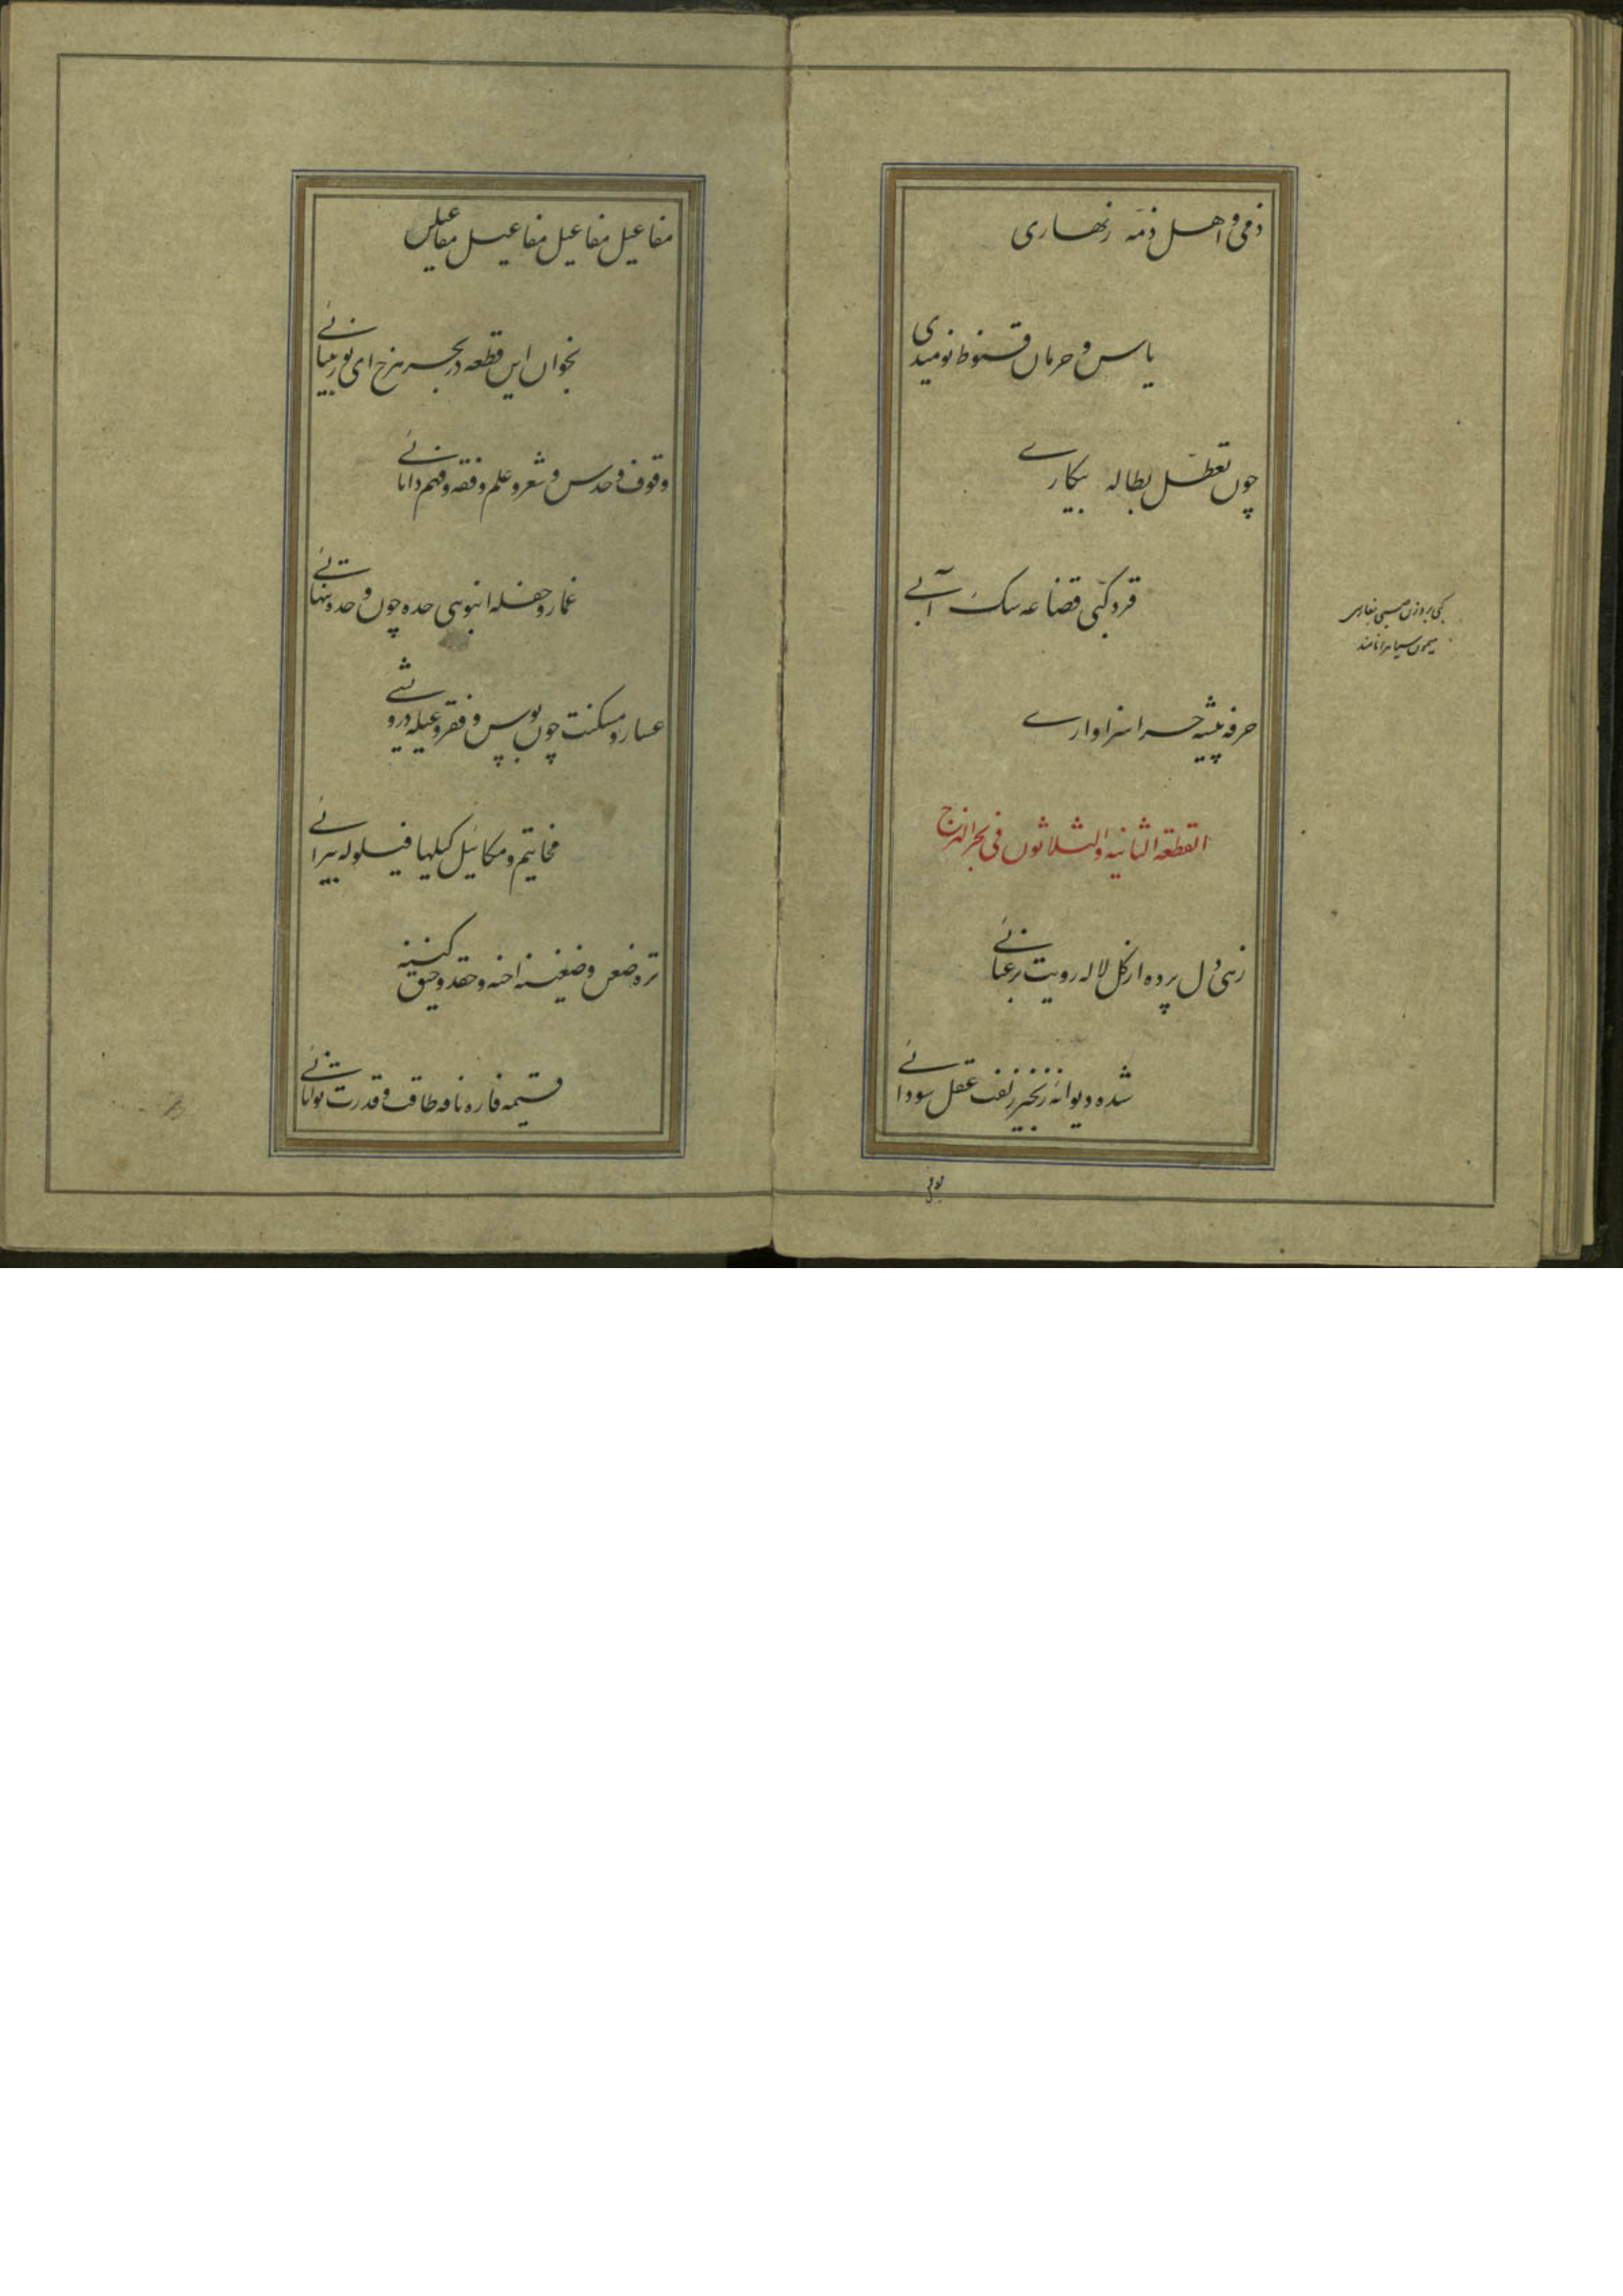 ذمی و اهل ذمه زنهاری
یاس و حرمان قنوط نومیدی
چون تعطل بطاله بیکاری
قرد کپی قضاعه سگ آبی
حرفه پیشه حرا سزاواری
القطعة الثانیه والثلاثون فی بحر الهزج
زهی دل برده از گل لاله رویت برعنائی
شده دیوانه زنجیر زلفت عقل سودائی
مفاعیل مفاعیل مفاعیل مفاعیلن
بخوان این قطعه در بحر هزج ای نور بینائی
وقوف و حدس و شعر و علم و فقه و فهم دانائی
غمار و حفله انبوهی حده چون وحد و تنهائی
عسار و مسکنت چون بوس و فقر و عیله درویشی
مخاتیم و مکائیل کیلها
تره ضغن و ضغینه احنه و حقد و حنق کینه
قسیمه فاره نافه طاقت و قدرت توانائی
کپی بر وزن
میمون سیاه را نامند